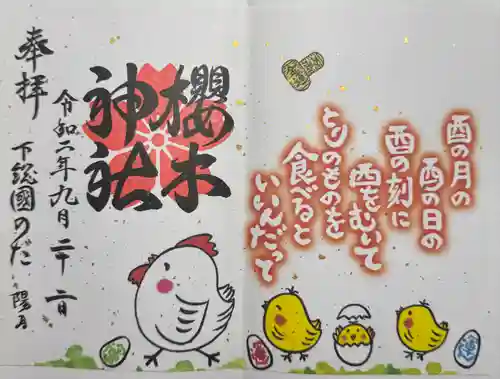 酉の月の
酉の日の
酉の刻に
西をむいて
とりのものを
食べると
いいんだって
櫻木
神社
令和二年九月二十二日
奉拝
下総國のだ